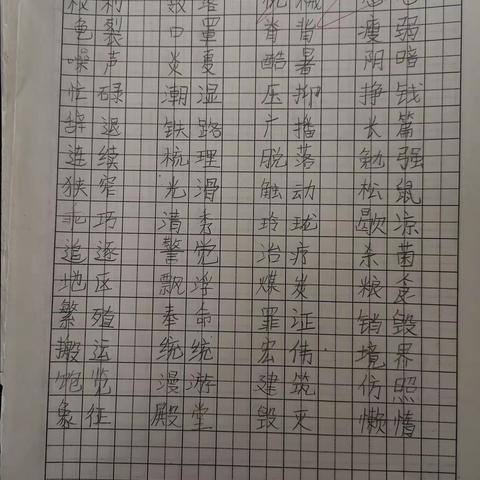 权利 机械
龟裂 口罩 脊背 瘦弱
噪声 炎夏 酷暑 阴暗
忙碌 潮湿 压抑 挣钱
辞退 铁路 广播 长篇
连续 梳理 脱落 勉强
狭窄 光滑 触动 松鼠
乖巧 清秀 玲珑 歇凉
追逐 警觉 治疗 杀菌
地区 飘浮 煤炭 粮食
繁殖 奉命 罪证 销毁
搬运 统统 宏伟 境界
饱览 漫游 建筑 仿照
象征 殿堂 毁灭 懒惰